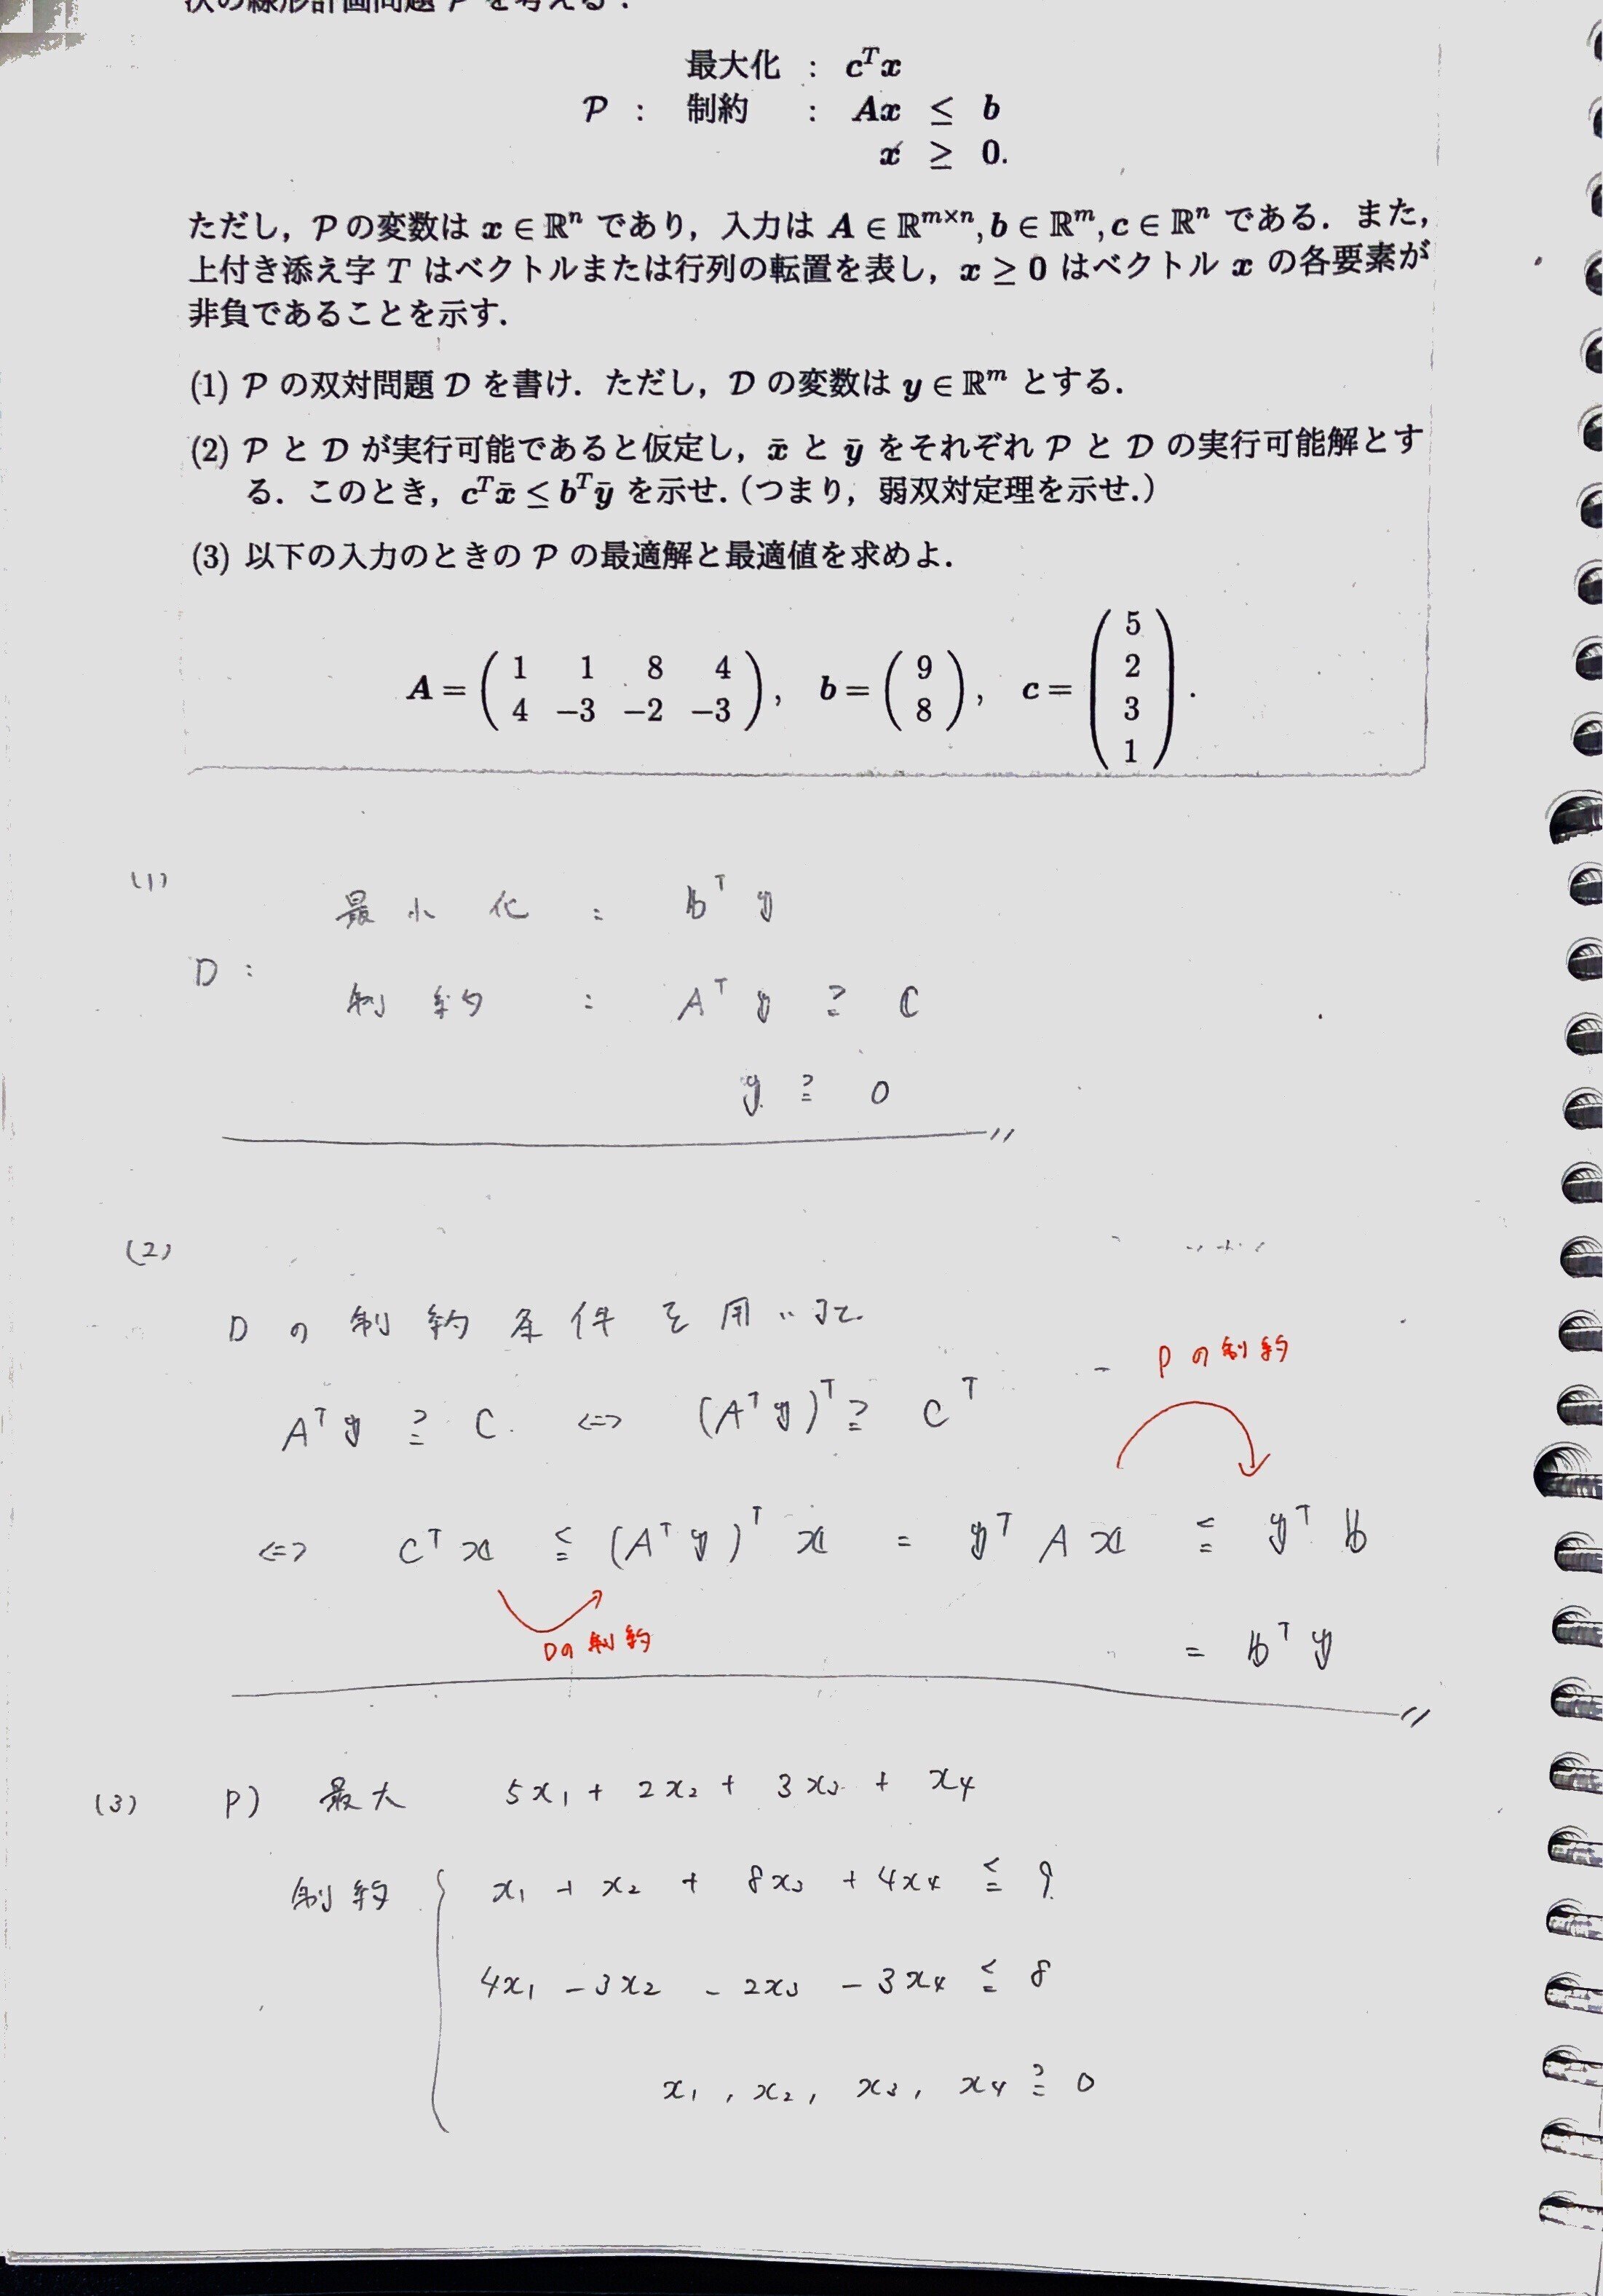 次の線形計画問題 𝒫 を考える.
最大化 : cᵀx
𝒫 : 制約 : Ax ≤ b
x ≥ 0.
ただし, 𝒫 の変数は x ∈ ℝⁿ であり, 入力は A ∈ ℝᵐˣⁿ, b ∈ ℝᵐ, c ∈ ℝⁿ である. また,
上付き添え字 T はベクトルまたは行列の転置を表し, x ≥ 0 はベクトル x の各要素が
非負であることを示す.
(1) 𝒫 の双対問題 𝒟 を書け. ただし, 𝒟 の変数は y ∈ ℝᵐ とする.
(2) 𝒫 と 𝒟 が実行可能であると仮定し, x̄ と ȳ をそれぞれ 𝒫 と 𝒟 の実行可能解とす
る. このとき, cᵀx̄ ≤ bᵀȳ を示せ. (つまり, 弱双対定理を示せ.)
(3) 以下の入力のときの 𝒫 の最適解と最適値を求めよ.
A = ( 1 1 8 4 ; 4 −3 −2 −3 ), b = ( 9 ; 8 ), c = ( 5 ; 2 ; 3 ; 1 ).
(1)
最小化 : bᵀy
D :
制約 : Aᵀy ≧ c
y ≧ 0
(2)
Dの制約条件を用いて
Pの制約
Aᵀy ≧ c ⇔ (Aᵀy)ᵀ ≧ cᵀ
⇔ cᵀx ≦ (Aᵀy)ᵀx = yᵀAx ≦ yᵀb
Dの制約
= bᵀy
(3) P) 最大 5x₁ + 2x₂ + 3x₃ + x₄
制約 { x₁ + x₂ + 8x₃ + 4x₄ ≦ 9
4x₁ − 3x₂ − 2x₃ − 3x₄ ≦ 8
x₁, x₂, x₃, x₄ ≧ 0